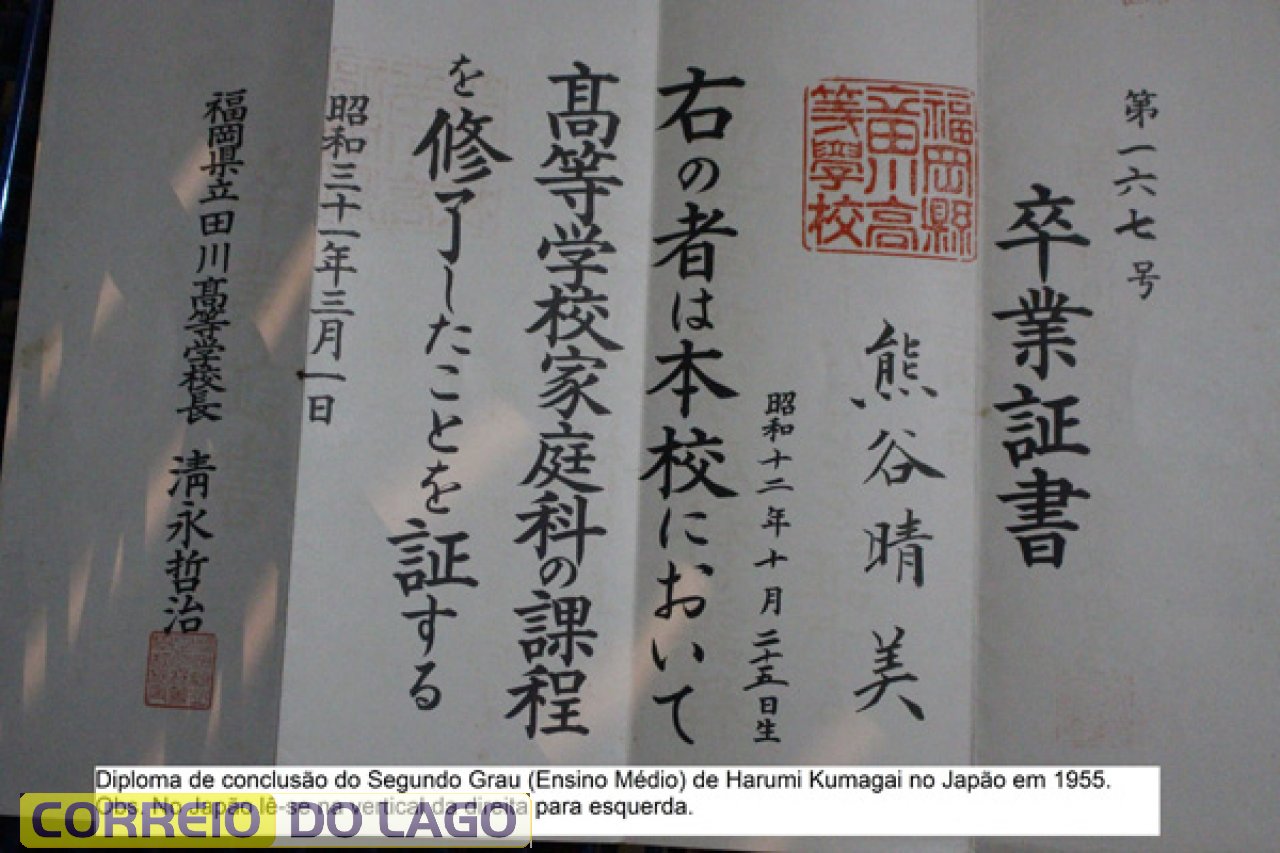 第一六七号
卒業証書
福岡縣
立田川高
等學校
熊谷晴美
昭和十二年十月二十五日生
右の者は本校において
高等学校家庭科の課程
を修了したことを証する
昭和三十一年三月一日
福岡県立田川高等学校長 清永哲治
Diploma de conclusão do Segundo Grau (Ensino Médio) de Harumi Kumagai no Japão em 1955.
Obs. No Japão lê-se na vertical da direita para esquerda.
CORREIO DO LAGO